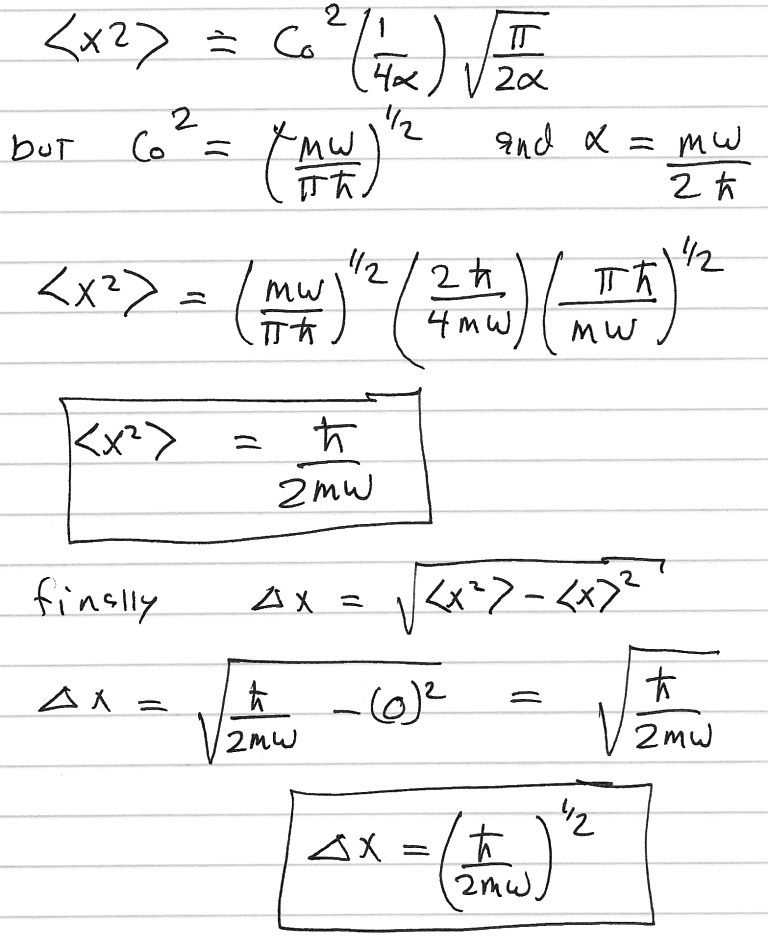 <x2> = C₀² (1/4α) √(π/2α)
but C₀² = (mω/πħ)^1/2 and α = mω/2ħ
<x²> = (mω/πħ)^1/2 (2ħ/4mω) (πħ/mω)^1/2
<x²> = ħ/2mω
finally Δx = √(<x²> - <x>²)
Δx = √(ħ/2mω - (0)²) = √(ħ/2mω)
Δx = (ħ/2mω)^1/2